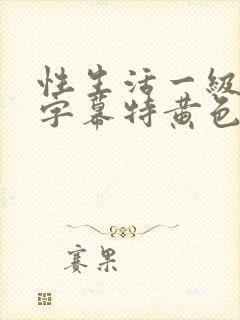 性生活一級
字幕特黄色
赛果